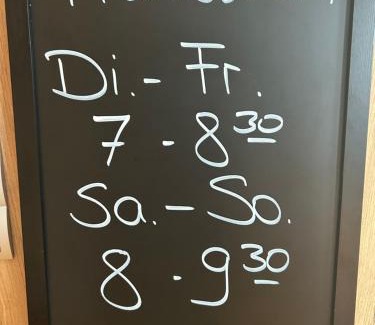 Di. - Fr.
7 - 8 30
Sa. - So.
8 - 9 30